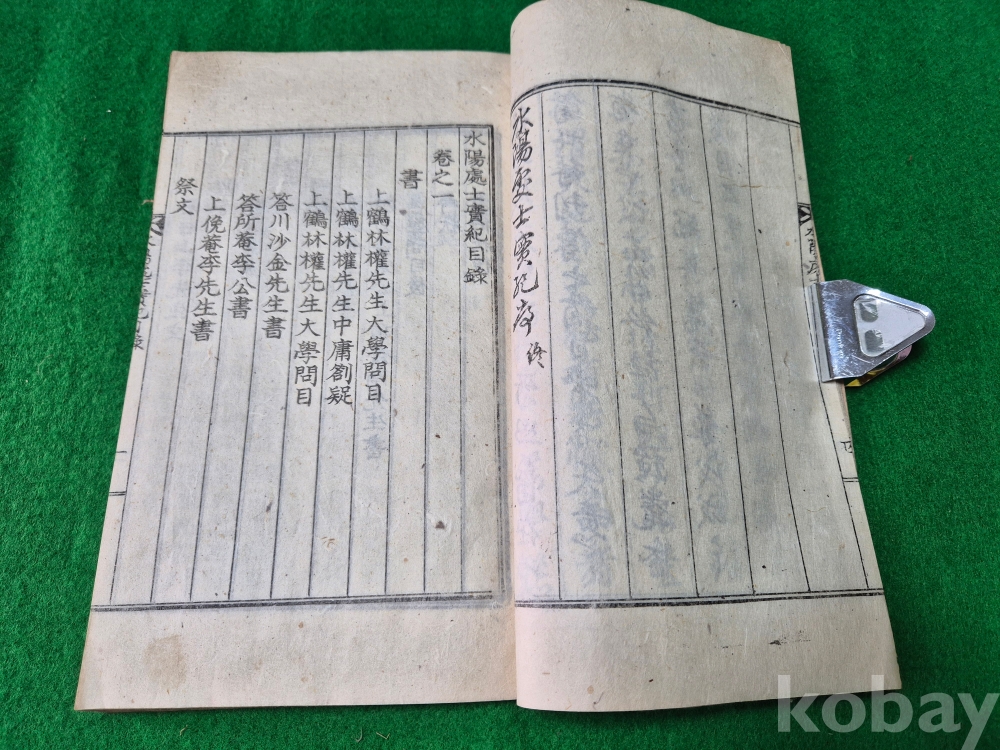 水陽處士實紀序 終
水陽處士實紀目錄
卷之一
書
上鶴林權先生大學問目
上鶴林權先生中庸劄疑
上鶴林權先生大學問目
答川沙金先生書
答所菴李公書
上俛菴李先生書
祭文
kobay